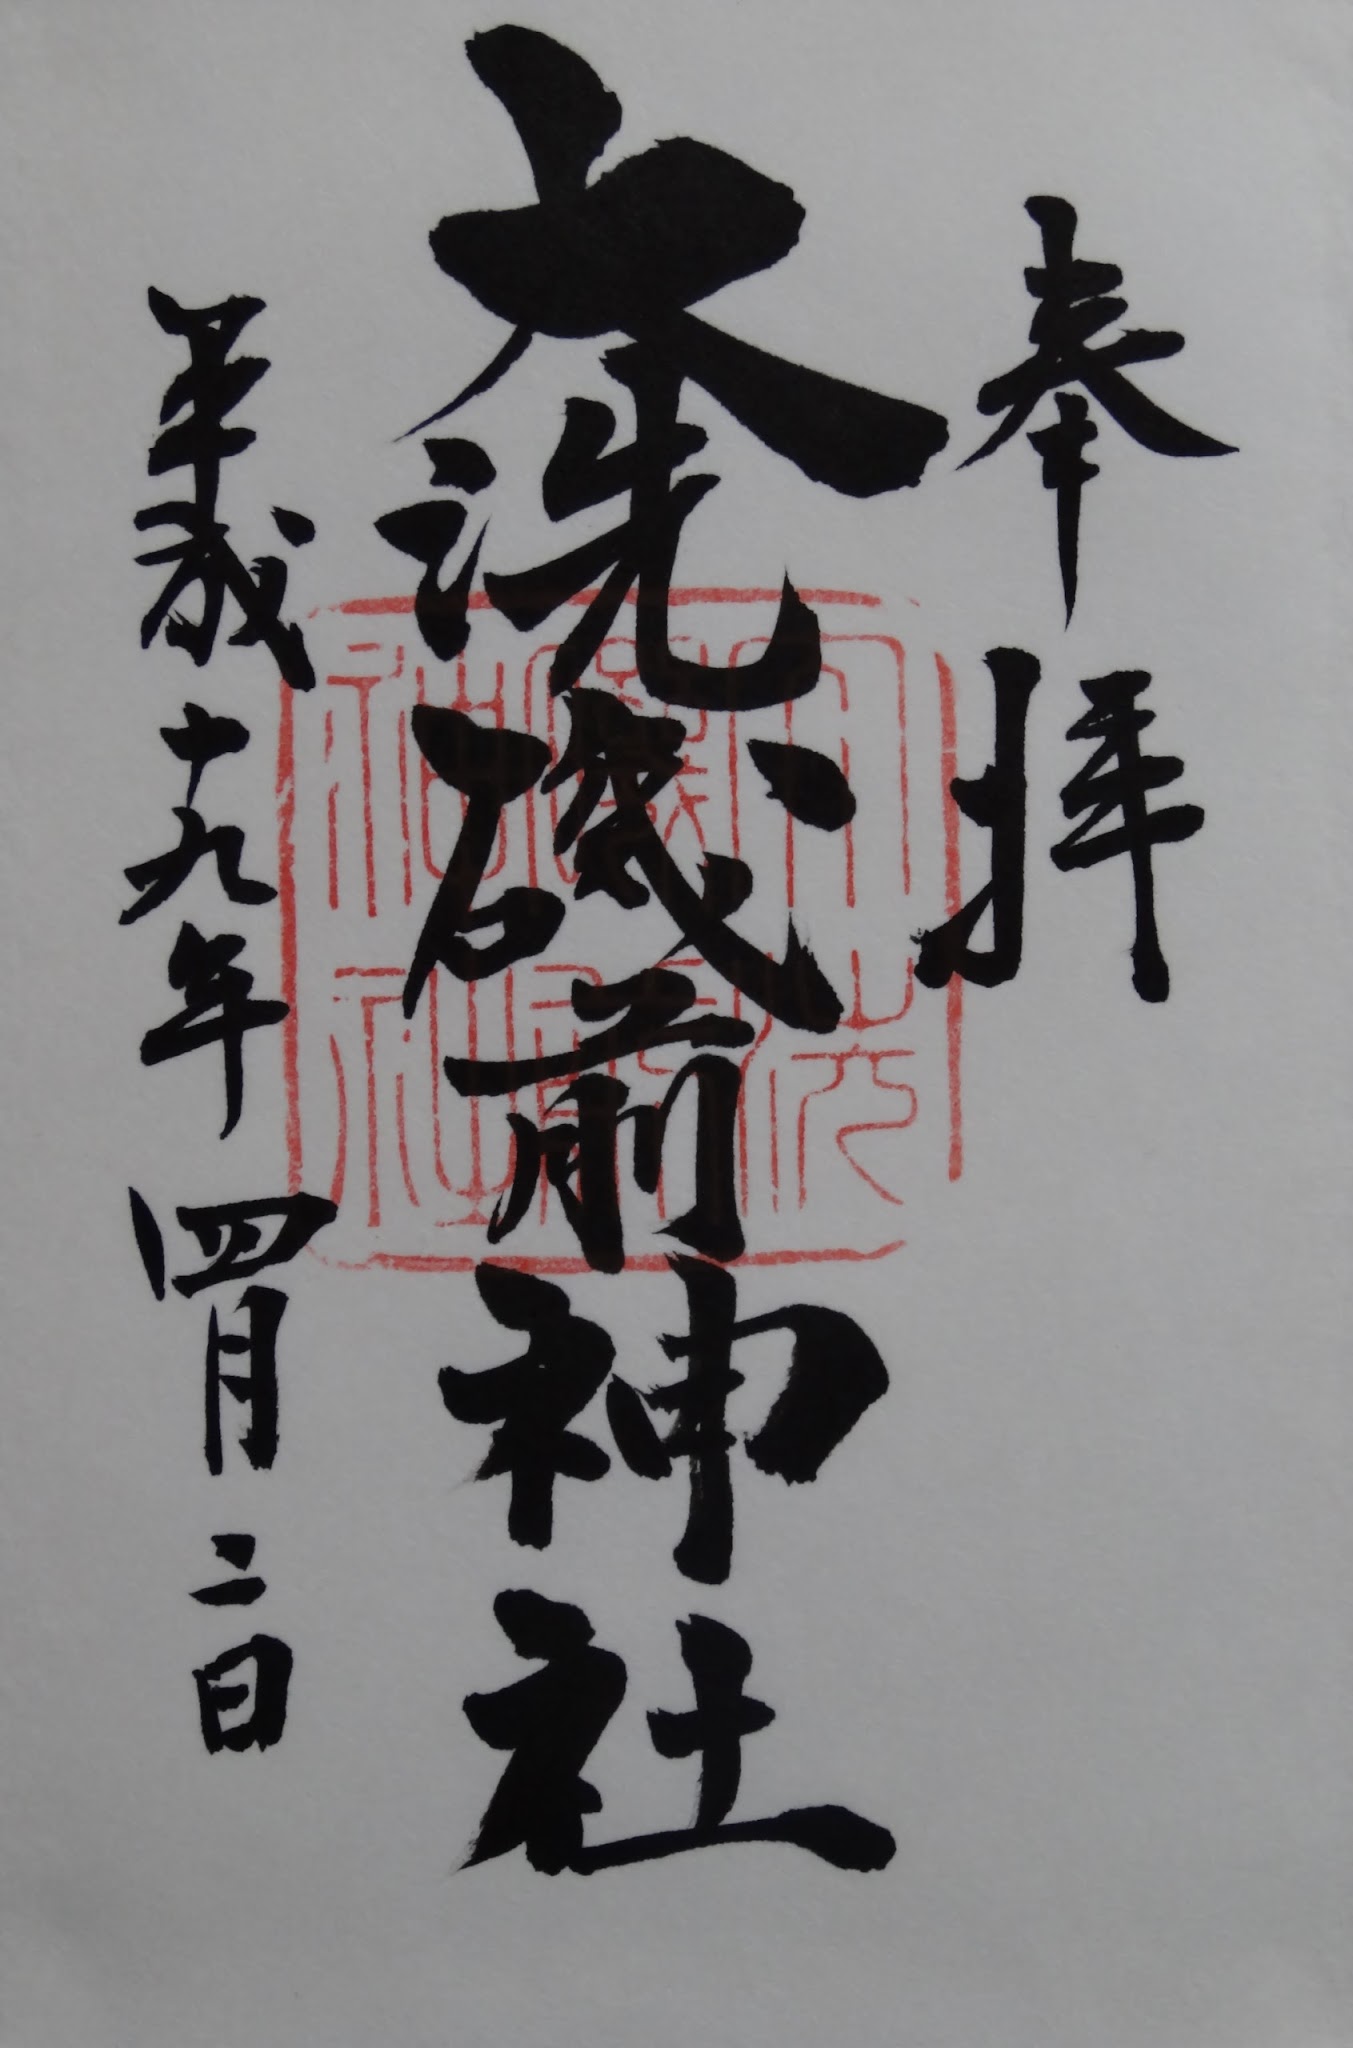 奉拝
大洗磯前神社
平成十九年四月二日
大洗
磯前
神社